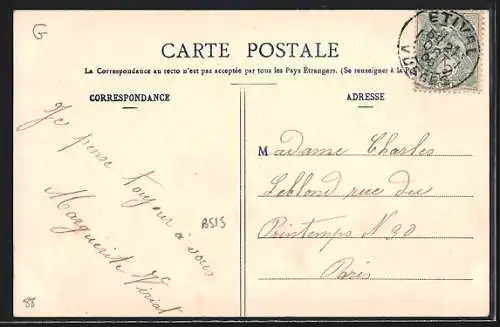 G
CARTE POSTALE
La Correspondance au recto n'est pas acceptée par tous les Pays Étrangers. (Se renseigner à la
ETIVAL
VOSGES
CORRESPONDANCE
ADRESSE
Je pense toujour à vous
Marguerite
B515
88
Madame Charles
Leblond rue du
Printemps N 30
Paris